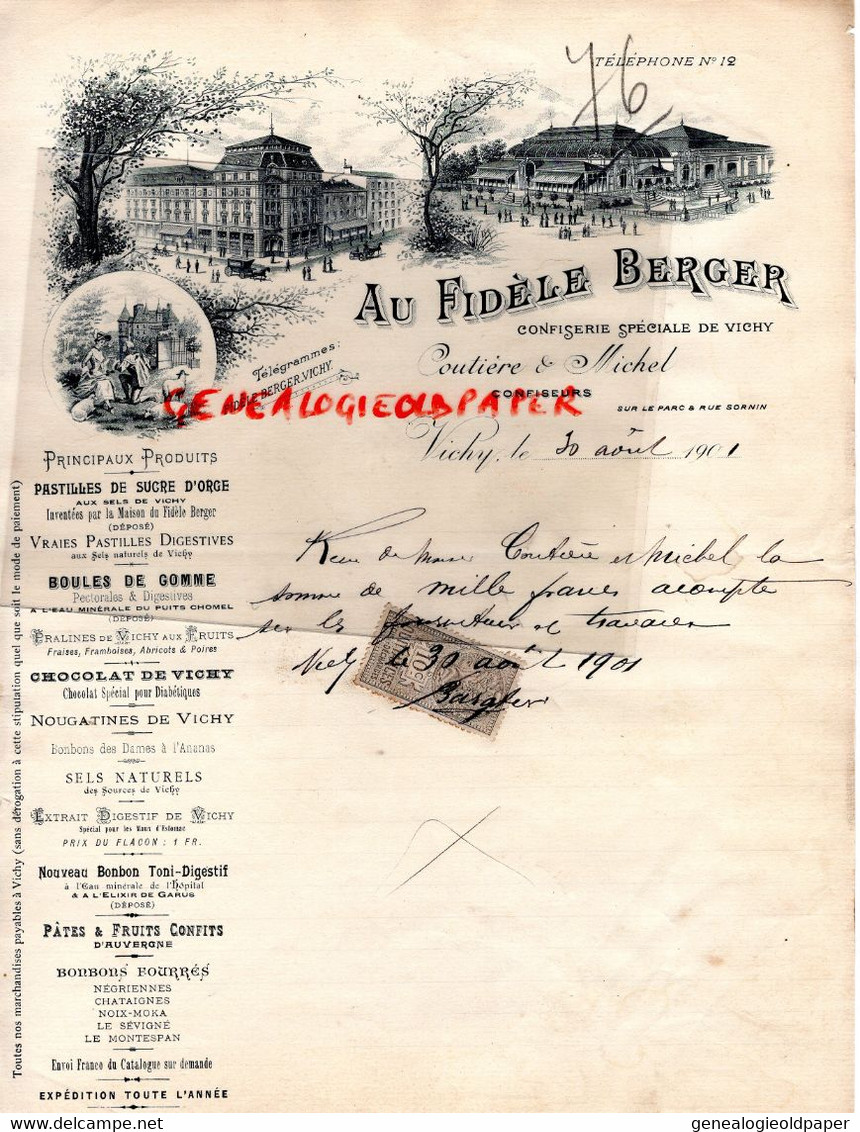 TÉLÉPHONE Nº 12
76
AU FIDÈLE BERGER
CONFISERIE SPÉCIALE DE VICHY
Coutière & Michel
CONFISEURS
SUR LE PARC & RUE SORNIN
Télégrammes:
FIDÈLE BERGER. VICHY.
GENEALOGIEOLDPAPER
Vichy, le 30 août 1901
PRINCIPAUX PRODUITS
PASTILLES DE SUCRE D'ORGE
AUX SELS DE VICHY
Inventées par la Maison du Fidèle Berger
(DÉPOSÉ)
VRAIES PASTILLES DIGESTIVES
aux Sels naturels de Vichy
BOULES DE GOMME
Pectorales & Digestives
A L'EAU MINÉRALE DU PUITS CHOMEL
(DÉPOSÉ)
PRALINES DE VICHY AUX FRUITS
Fraises, Framboises, Abricots & Poires
CHOCOLAT DE VICHY
Chocolat Spécial pour Diabétiques
NOUGATINES DE VICHY
Bonbons des Dames à l'Ananas
SELS NATURELS
des Sources de Vichy
EXTRAIT DIGESTIF DE VICHY
Spécial pour les Maux d'Estomac
PRIX DU FLACON : 1 FR.
Nouveau Bonbon Toni-Digestif
à l'Eau minérale de l'Hôpital
& A L'ELIXIR DE GARUS
(DÉPOSÉ)
PÂTES & FRUITS CONFITS
D'AUVERGNE
BONBONS FOURRÉS
NÉGRIENNES
CHATAIGNES
NOIX-MOKA
LE SÉVIGNÉ
LE MONTESPAN
Envoi Franco du Catalogue sur demande
EXPÉDITION TOUTE L'ANNÉE
Toutes nos marchandises payables à Vichy (sans dérogation à cette stipulation quel que soit le mode de paiement)
Coutière et Michel la
somme de mille francs acompte
sur les et travaux
le 30 août 1901
genealogieoldpaper